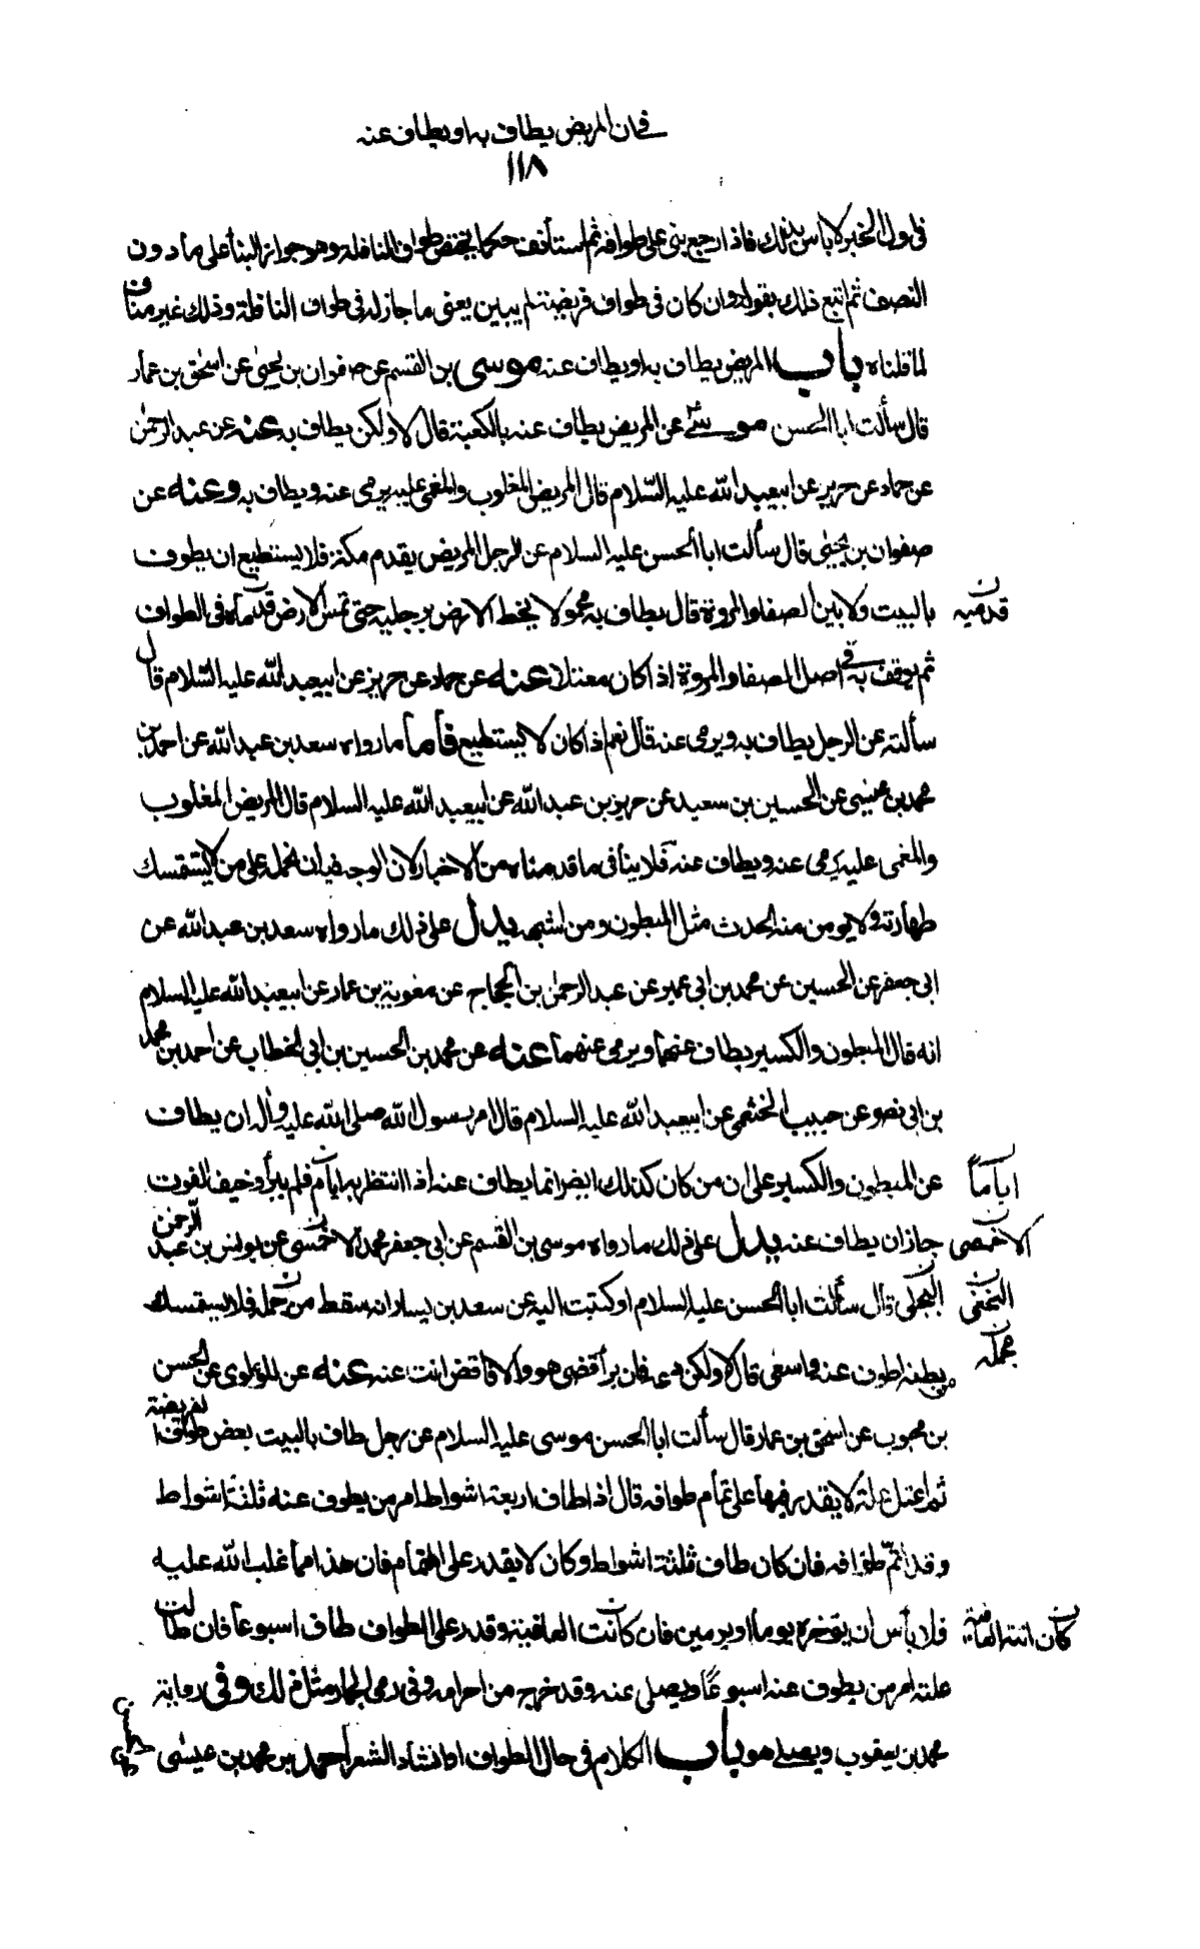 في ان المريض يطاف به او يطاف عنه
١١٨
في اول الخبر لا باس بذلك فاذا رجع بنى على طوافه ثم استأنف حكما يختص طواف النافلة وهو جواز البنأ على ما دون
النصف ثم اتبع ذلك بقوله وان كان في طواف فريضة لم يبين يعني ما جاز له في طواف النافلة وذلك غير مناف
لما قلناه باب المريض يطاف به او يطاف عنه موسى بن القسم عن صفوان بن يحيى عن اسحق بن عمار
قال سألت ابا الحسن موسى ع عن المريض يطاف عنه بالكعبة قال لا ولكن يطاف به عنه عن عبد الرحمن
عن حماد عن حريز عن ابيعبد الله عليه السّلام قال المريض المغلوب والمغمى عليه يرمى عنه ويطاف به وعنه عن
صفوان بن يحيى قال سألت ابا الحسن عليه السلام عن الرجل المريض يقدم مكة فلا يستطيع ان يطوف
بالبيت ولا بين الصفا والمروة قال يطاف به محمولا يخط الارض برجليه حتى تمس الارض قدماه في الطواف
قدميه
ثم يوقف به في اصل الصفا والمروة اذا كان معتلا عنه عن حماد عن حريز عن ابيعبد الله عليه السّلام قال
سألته عن الرجل يطاف به ويرمى عنه قال نعم اذا كان لا يستطيع فأما ما رواه سعد بن عبد الله عن احمد بن
محمد بن عيسى عن الحسين بن سعيد عن حريز بن عبد الله عن ابيعبد الله عليه السلام قال المريض المغلوب
والمغمى عليه يرمى عنه ويطاف عنه فلا ينافى ما قدمناه من الاخبار لان الوجه فيه ان نحمله على من لا يستمسك
طهارته ولا يومن منه الحدث مثل المبطون ومن اشبهه يدل على ذلك ما رواه سعد بن عبد الله عن
ابي جعفر عن الحسين عن محمد بن ابي عمير عن عبد الرحمن بن الحجاج عن معوية بن عمار عن ابيعبد الله عليه السلام
انه قال المبطون والكسير يطاف عنهما ويرمى عنهما عنه عن محمد بن الحسين بن ابي الخطاب عن احمد بن محمد
بن ابي نصر عن حبيب الخثعمي عن ابيعبد الله عليه السلام قال امر رسول الله صلى الله عليه وآله ان يطاف
عن المبطون والكسير على ان من كان كذلك ايضا انما يطاف عنه اذا انتظر به ايام فلم يبرأ وخيف الفوت
اياماً
جاز ان يطاف عنه يدل على ذلك ما رواه موسى بن القسم عن ابي جعفر محمد الاخمسى عن يونس بن عبد الرحمن
الاحمصى
البجلى قال سألت ابا الحسن عليه السلام او كتبت اليه عن سعد بن يسار انه سقط من جمله فلا يستمسك
النخعى
محمله
بطنه اطوف عنه واسعى قال لا ولكن دعه فان برأ قضى هو والا فاقض انت عنه عنه عن اللؤلؤى عن الحسن
بن محبوب عن اسحق بن عمار قال سألت ابا الحسن موسى عليه السلام عن رجل طاف بالبيت بعض طوافه الفريضة
ثم اعتل علة لا يقدر فيها على تمام طوافه قال اذا طاف اربعة اشواط امر من يطوف عنه ثلثة اشواط
وقد تمّ طوافه فان كان طاف ثلثة اشواط وكان لا يقدر على التمام فان هذا مما غلب الله عليه
فلا بأس ان يؤخره يوما او يومين فان كانت العافية وقدر على الطواف طاف اسبوعا فان طالت
كان انته العافية
علته امر من يطوف عنه اسبوعًا ويصلى عنه وقد خرج من احرامه وفي رمى الجمار مثل ذلك وفي رواية
محمد بن يعقوب ويصلى هو باب الكلام في حال الطواف او انشاد الشعر احمد بن محمد بن عيسى